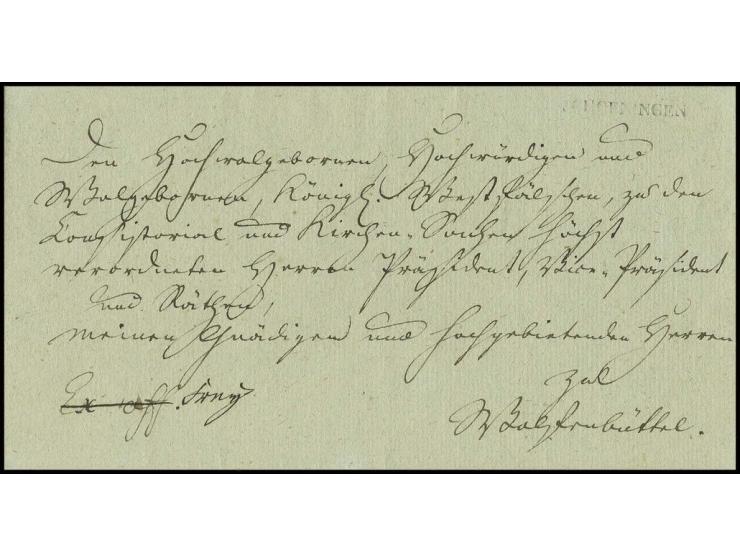 SCHOENINGEN
Den Hochwolgebornen, Hochwürdigen und
Wolgebornen, Königl: Westfälschen, zu den
Consistorial und Kirchen-Sachen höchst
verordneten Herren Präsident, Vice-Präsident
und Räthen,
meinen Gnädigen und hochgebietenden Herren
zu
Ex off. Frey
Wolfenbüttel.